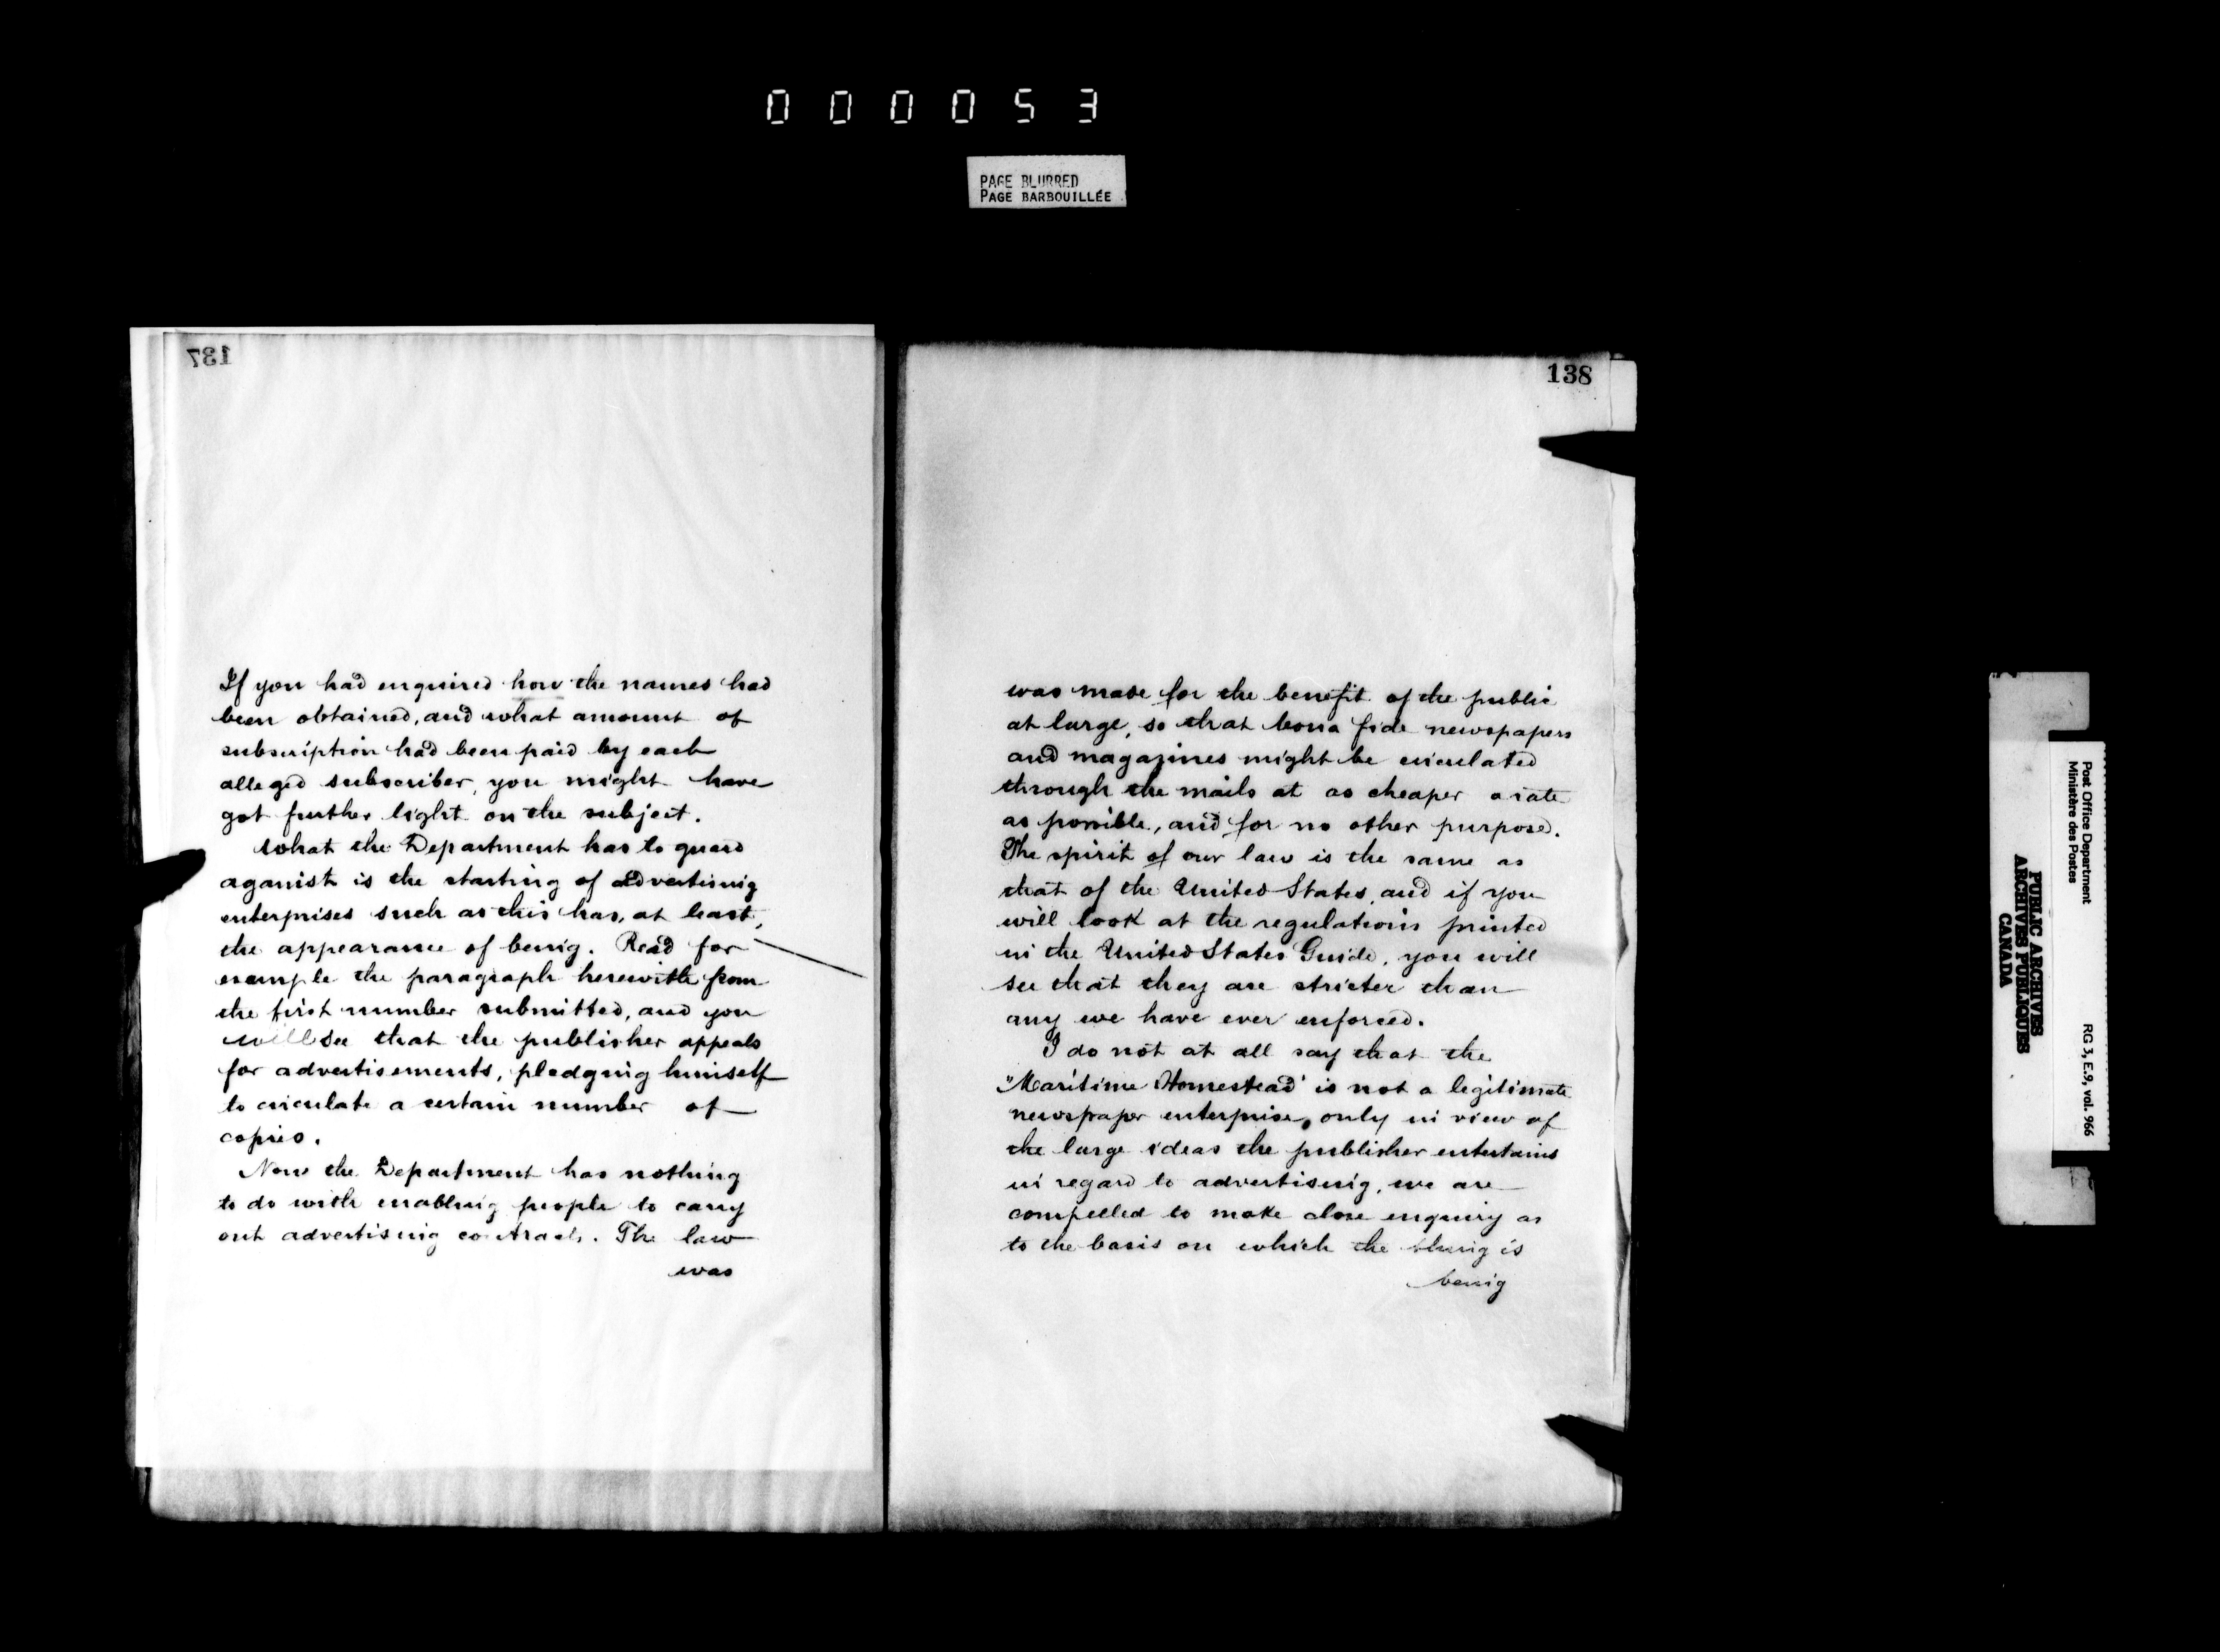 000053
PAGE BLURRED
PAGE BARBOUILLÉE
137
If you had enquired how the names had
been obtained, and what amount of
subscription had been paid by each
alleged subscriber, you might have
got further light on the subject.
What the Department has to guard
against is the starting of advertising
enterprises such as this has, at least,
the appearance of being. Read for
example the paragraph herewith from
the first number submitted, and you
will see that the publisher appeals
for advertisements, pledging himself
to circulate a certain number of
copies.
Now the Department has nothing
to do with enabling people to carry
out advertising contracts. The law
was
138
was made for the benefit of the public
at large, so that bona fide newspapers
and magazines might be circulated
through the mails at as cheaper a rate
as possible, and for no other purpose.
The spirit of our law is the same as
that of the United States, and if you
will look at the regulations printed
in the United States Guide, you will
see that they are stricter than
any we have ever enforced.
I do not at all say that the
"Maritime Homestead" is not a legitimate
newspaper enterprise, only in view of
the large ideas the publisher entertains
in regard to advertising, we are
compelled to make close enquiry as
to the basis on which the thing is
being
Post Office Department
Ministère des Postes
RG 3, E.9, vol. 966
PUBLIC ARCHIVES
ARCHIVES PUBLIQUES
CANADA